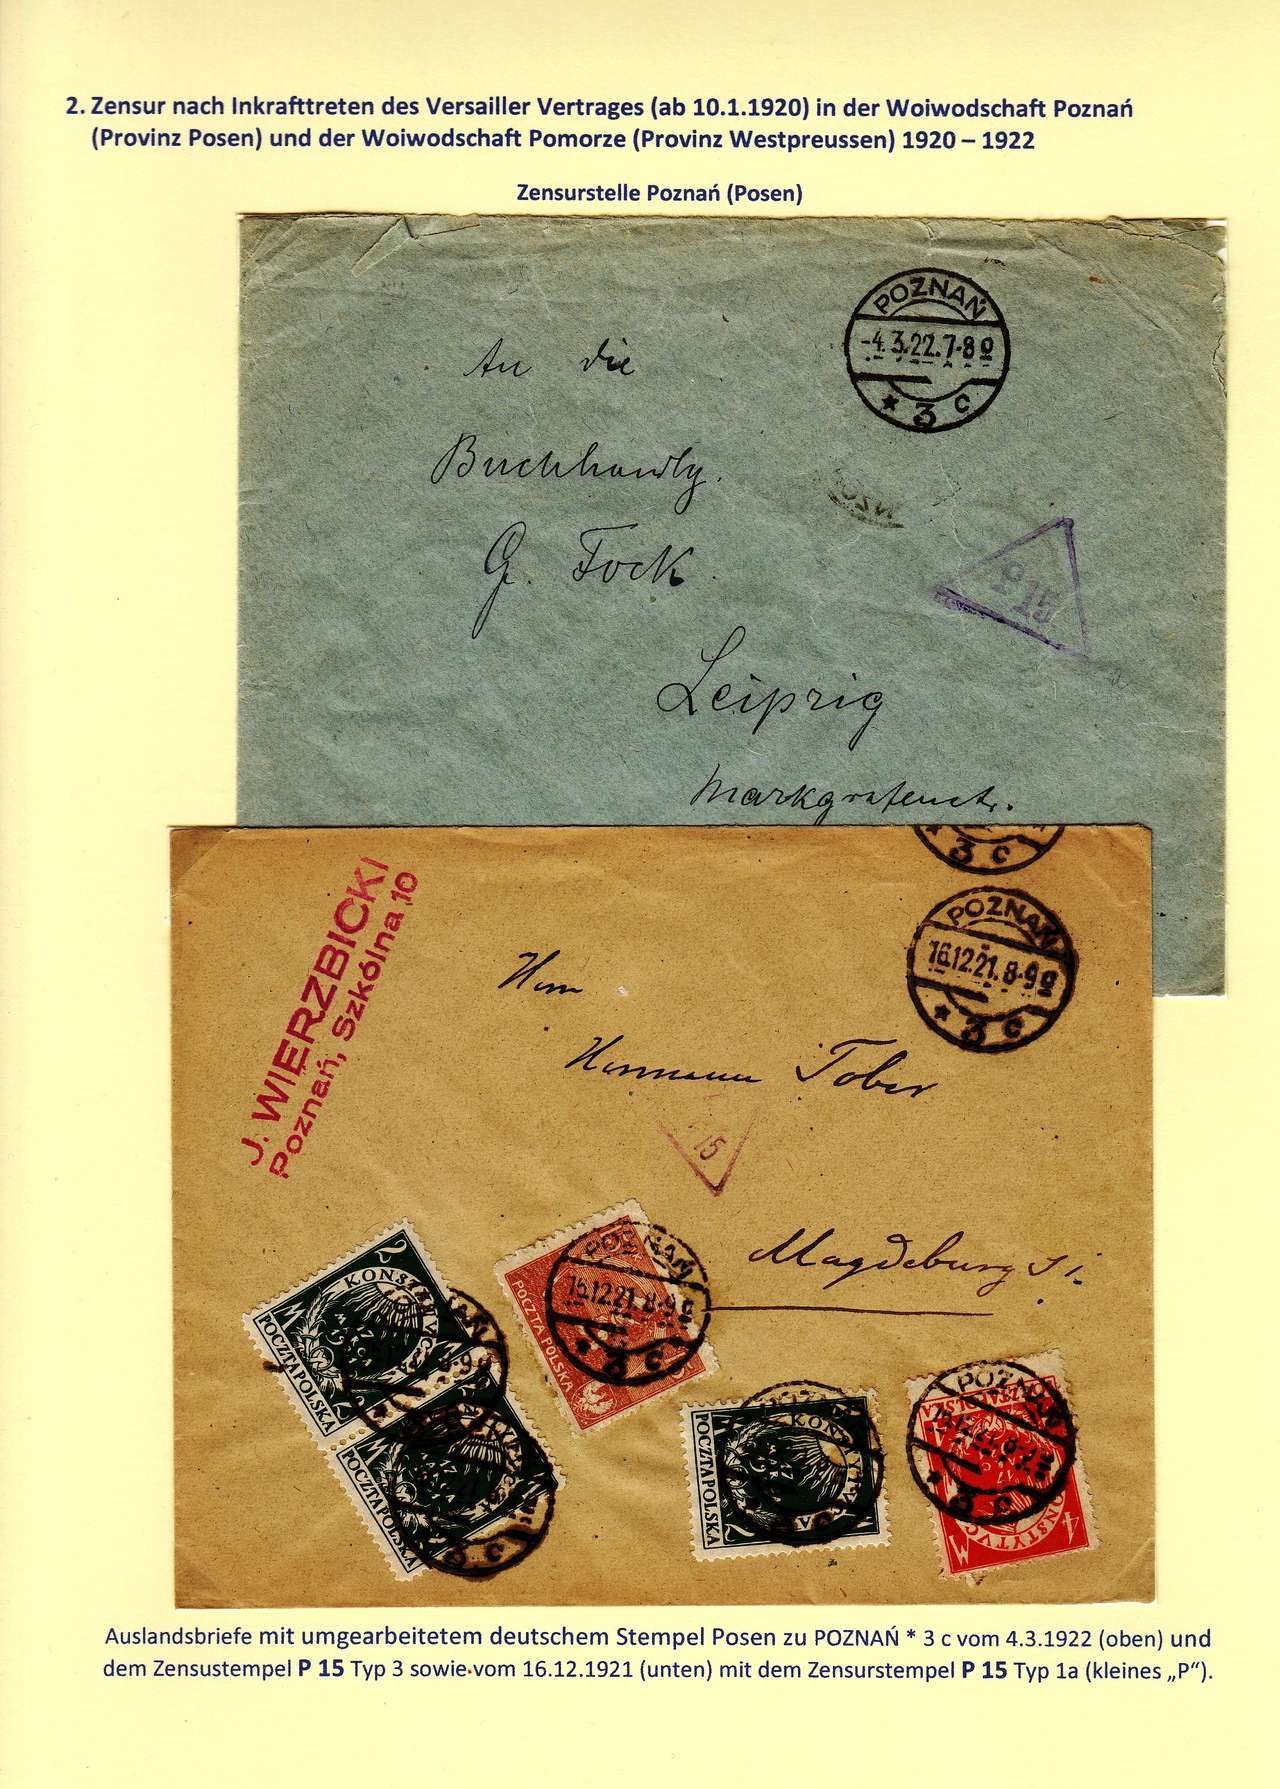 2. Zensur nach Inkrafttreten des Versailler Vertrages (ab 10.1.1920) in der Woiwodschaft Poznań
(Provinz Posen) und der Woiwodschaft Pomorze (Provinz Westpreussen) 1920 – 1922
Zensurstelle Poznań (Posen)
POZNAŃ
-4.3.22.7-8 o
* 3 c
An die
Buchhandlg.
G. Fock
P 15
Leipzig
Markgrafenstr.
3 c
J. WIERZBICKI
Poznań, Szkólna 10
POZNAŃ
16.12.21.8-9 o
* 3 c
Herrn
Hermann Tober
15
Magdeburg
2 KONSTYTUCJA
M 2
POCZTA POLSKA
POZNAŃ
16.12.21.8-9 o
* 3 c
POCZTA POLSKA
KONSTYTUCJA
M 2
POCZTA POLSKA
KONSTYTUCJA
M 2
POCZTA POLSKA
POZNAŃ
3 c
POCZTA POLSKA
KONSTYTUCJA
4 M
Auslandsbriefe mit umgearbeitetem deutschem Stempel Posen zu POZNAŃ * 3 c vom 4.3.1922 (oben) und
dem Zensustempel P 15 Typ 3 sowie vom 16.12.1921 (unten) mit dem Zensurstempel P 15 Typ 1a (kleines „P“).